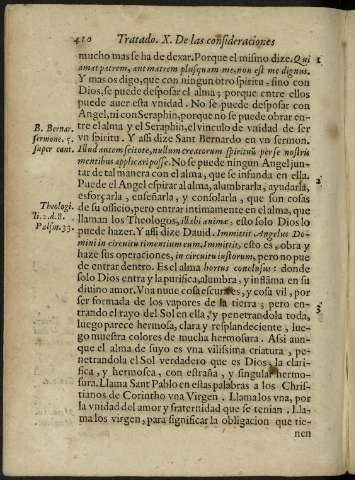 410 Tratado. X. De las consideraciones
mucho mas se ha de dexar. Porque el mismo dize. Qui
amat patrem, aut matrem plusquam me, non est me dignus.
Y mas os digo, que con ningun otro spiritu. sino con
Dios, se puede desposar el alma; porque entre ellos
puede auer esta vnidad. No se puede desposar con
Angel, ni con Seraphin, porque no se puede obrar en-
tre el alma y el Seraphin, el vinculo de vnidad de ser
vn spiritu. Y assi dize Sant Bernardo en vn sermon.
Illud autem scitote, nullum creatorum spirituũ per se nostris
mentibus applicari posse. No se puede ningun Angel jun-
tar de tal manera con el alma, que se infunda en ella.
Puede el Angel espirar al alma, alumbrarla, ayudarla,
esforçarla, enseñarla, y consolarla, que son cosas
de su officio, pero entrar intimamente en el alma, que
llaman los Theologos, illabi animæ, esto solo Dios lo
puede hazer. Y assi dize Dauid. Immittit Angelus Do-
mini in circuitu timentium eum. Immittit, esto es, obra y
haze sus operaciones, in circuitu iustorum, pero no pue
de entrar dentro. Es el alma hortus conclusus: donde
solo Dios entra y la purifica, alumbra, y inflãma en su
diuino amor. Vna nuue es escura, y cosa vil, por
ser formada de los vapores de la tierra; pero en-
trando el rayo del Sol en ella, y penetrandola toda,
luego parece hermosa, clara y resplandeciente, lue-
go muestra colores de mucha hermosura. Assi aun-
que el alma de suyo es vna vilissima criatura, pe-
netrandola el Sol verdadero que es Dios, la clari-
fica, y hermosea, con estraña, y singular hermo-
sura. Llama Sant Pablo en estas palabras a los Chris-
tianos de Corintho vna Virgen. Llama los vna, por
la vnidad del amor y fraternidad que se tenian. Lla-
ma los virgen, para significar la obligacion que tie-
nen
B. Bernar.
sermone. 5.
super cant.
Theologi.
2.d.8.
Psalm. 33.
1
2
3